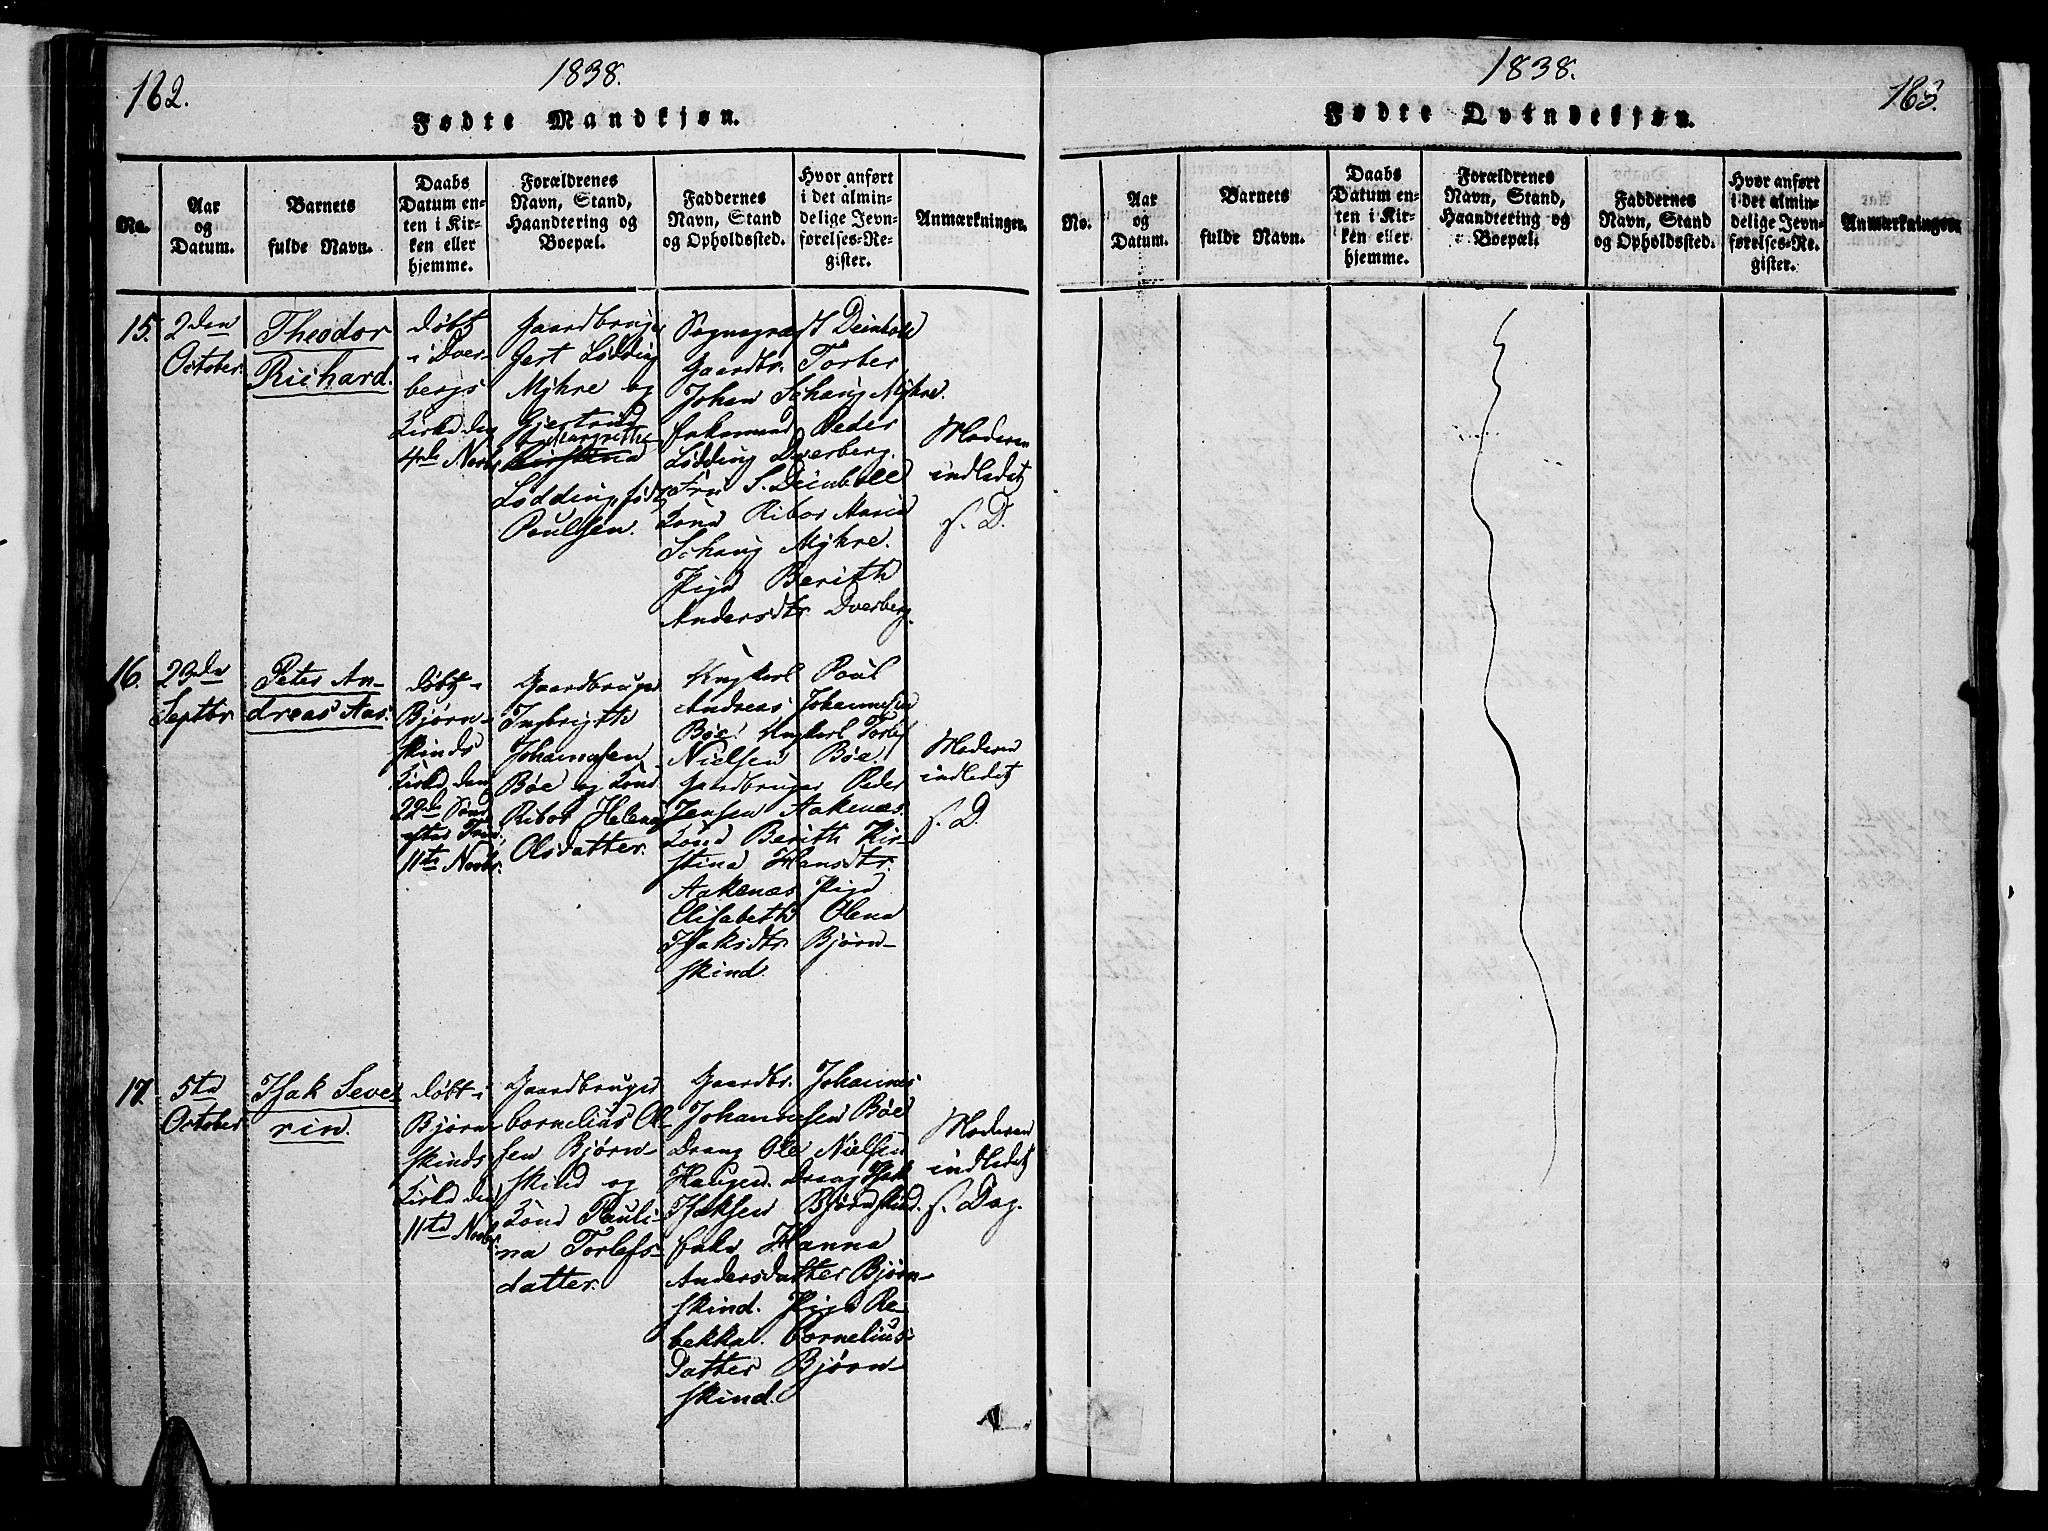 162.
1838.
Fødte Mandkjøn.
No.
Aar
og
Datum.
Barnets
fulde Navn.
Daabs
Datum en-
ten i Kir-
ken eller
hjemme.
Forældrenes
Navn, Stand,
Haandtering og
Boepæl.
Faddernes
Navn, Stand
og Opholdssted.
Hvor anført
i det almin-
delige Jevn-
førelses-Re-
gister.
Anmærkninger.
15.
2den
October.
Theodor
Richard.
døbt
i Dver-
bergs
Kirke den
4de Novbr.
Gaardbruger
Gert Lødding
Myhre og
Gjertrud
Margrethe
Kirstina
Lødding, født
Poulsen.
Sognepræst Deinboll
Gaardbr. Torber
Johan Schaug Myhre.
Enkemand Peder
Lødding Dverberg.
Fru S. Deinboll
Kone Ribor Maria
Schaug Myhre.
Pige Berith
Andersdtr. Dverberg.
Moderen
indledet
s. D.
16.
29de
Septbr
Peter An-
dreas Aas.
døbt i
Bjørn-
skinds
Kirke den
22de Sønd.
efter Trin.
11te Novbr.
Gaardbruger
Ingbrigth
Johannesen
Bøe og Kone
Ribor Helena
Olsdatter.
Ungkarl Poul
Andreas Johannesen
Bøe. Ungkarl Torlef
Nielsen Bøe.
Gaardbruger Peder
Jensen Aakenæs.
Kone Berith Kir-
stina Hansdtr.
Aakenæs Pige
Elisabeth Olena
Isaksdtr. Bjørn-
skind.
Moderen
indledet
s. D.
17.
5te
October
Isak Seve-
rin.
døbt i
Bjørn-
skinds
Kirke den
11te Novbr.
Gaardbruger
Cornelius Ol-
sen Bjørn-
skind og
Kone Pauli-
na Torlefs-
datter.
Gaardbr. Johannes
Johannesen Bøe
Dreng Ole Nielsen
Haugen. Dreng Isak
Isaksen Bjørnskind.
Enke Hanna
Andersdatter Bjørn-
skind. Pige Re-
bekka Cornelius-
Datter Bjørn-
skind.
Moderen
indledet
s. Dag.
1838.
163.
Fødte Qvindekjøn.
No.
Aar
og
Datum.
Barnets
fulde Navn.
Daabs
Datum en-
ten i Kir-
ken eller
hjemme.
Forældrenes
Navn, Stand,
Haandtering og
Boepæl.
Faddernes
Navn, Stand
og Opholdssted.
Hvor anført
i det almin-
delige Jevn-
førelses-Re-
gister.
Anmærkninger.